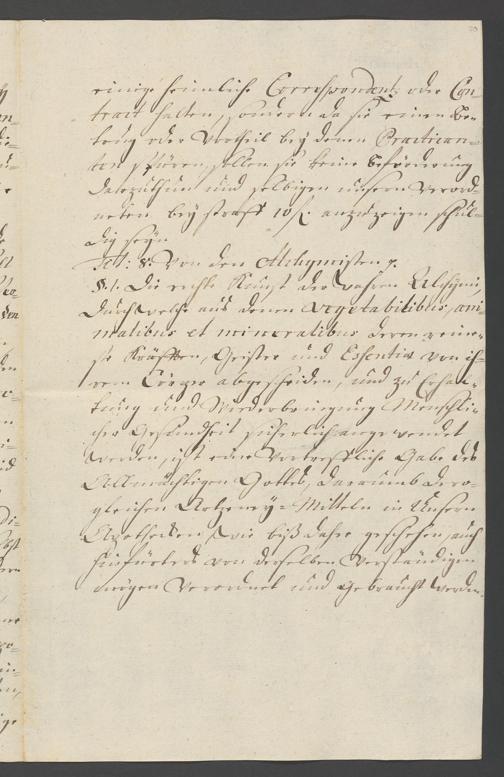 einige heimliche Correspondentz oder Con-
tract halten, sondern da sie einen Be-
trug oder Vortheil bey denen Practican-
ten spüren, sollen sie keine Beförderung
darzu thun und selbigen unsern Verord-
neten bey straff 10 f. anzuzeigen schul-
dig seyn
Tit: 8. Von den Alchymisten
§. 1. Die rechte Kunst der wahren Alchymi,
durch welche aus denen vegetabilibus, ani-
malibus et mineralibus deren reine-
ste Kräfften, Geister und Essentia von ih-
rem Cörper abgescheiden, und zu Erhal-
tung und Wiederbringung Menschli-
cher Gesundheit sicherlich angewendet
werden, ist eine Vortreffliche Gabe des
Allmächtigen Gottes, darumb dero-
gleichen Artzeney-Mitteln in Unsern
Apothecken, wie biß dahero geschehen, auch
hinfürters von derselben Verständigen
mögen Verordnet und gebraucht werden.